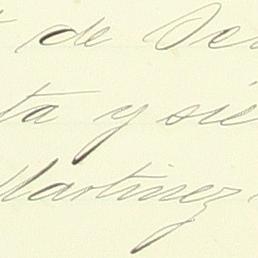 de
ta y sie
Martinez